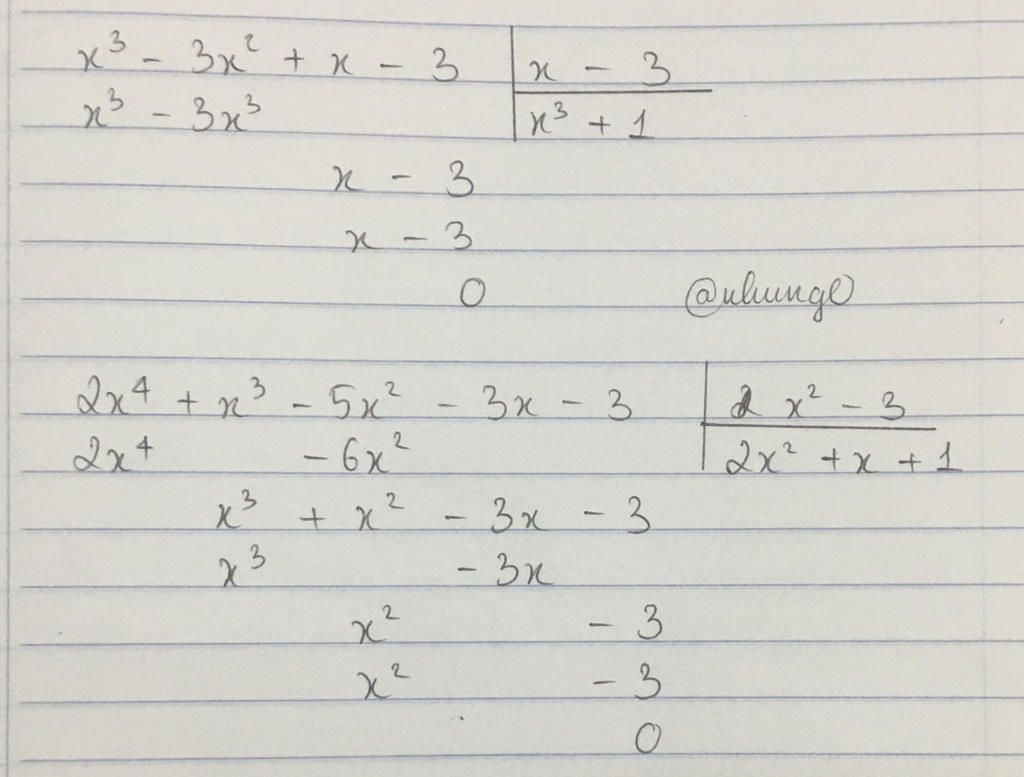 x³ - 3x² + x - 3 | x - 3
x³ - 3x³ | x³ + 1
x - 3
x - 3
0
2x⁴ + x³ - 5x² - 3x - 3 | x² - 3
2x⁴ - 6x² | 2x² + x + 1
x³ + x² - 3x - 3
x³ - 3x
x² - 3
x² - 3
0